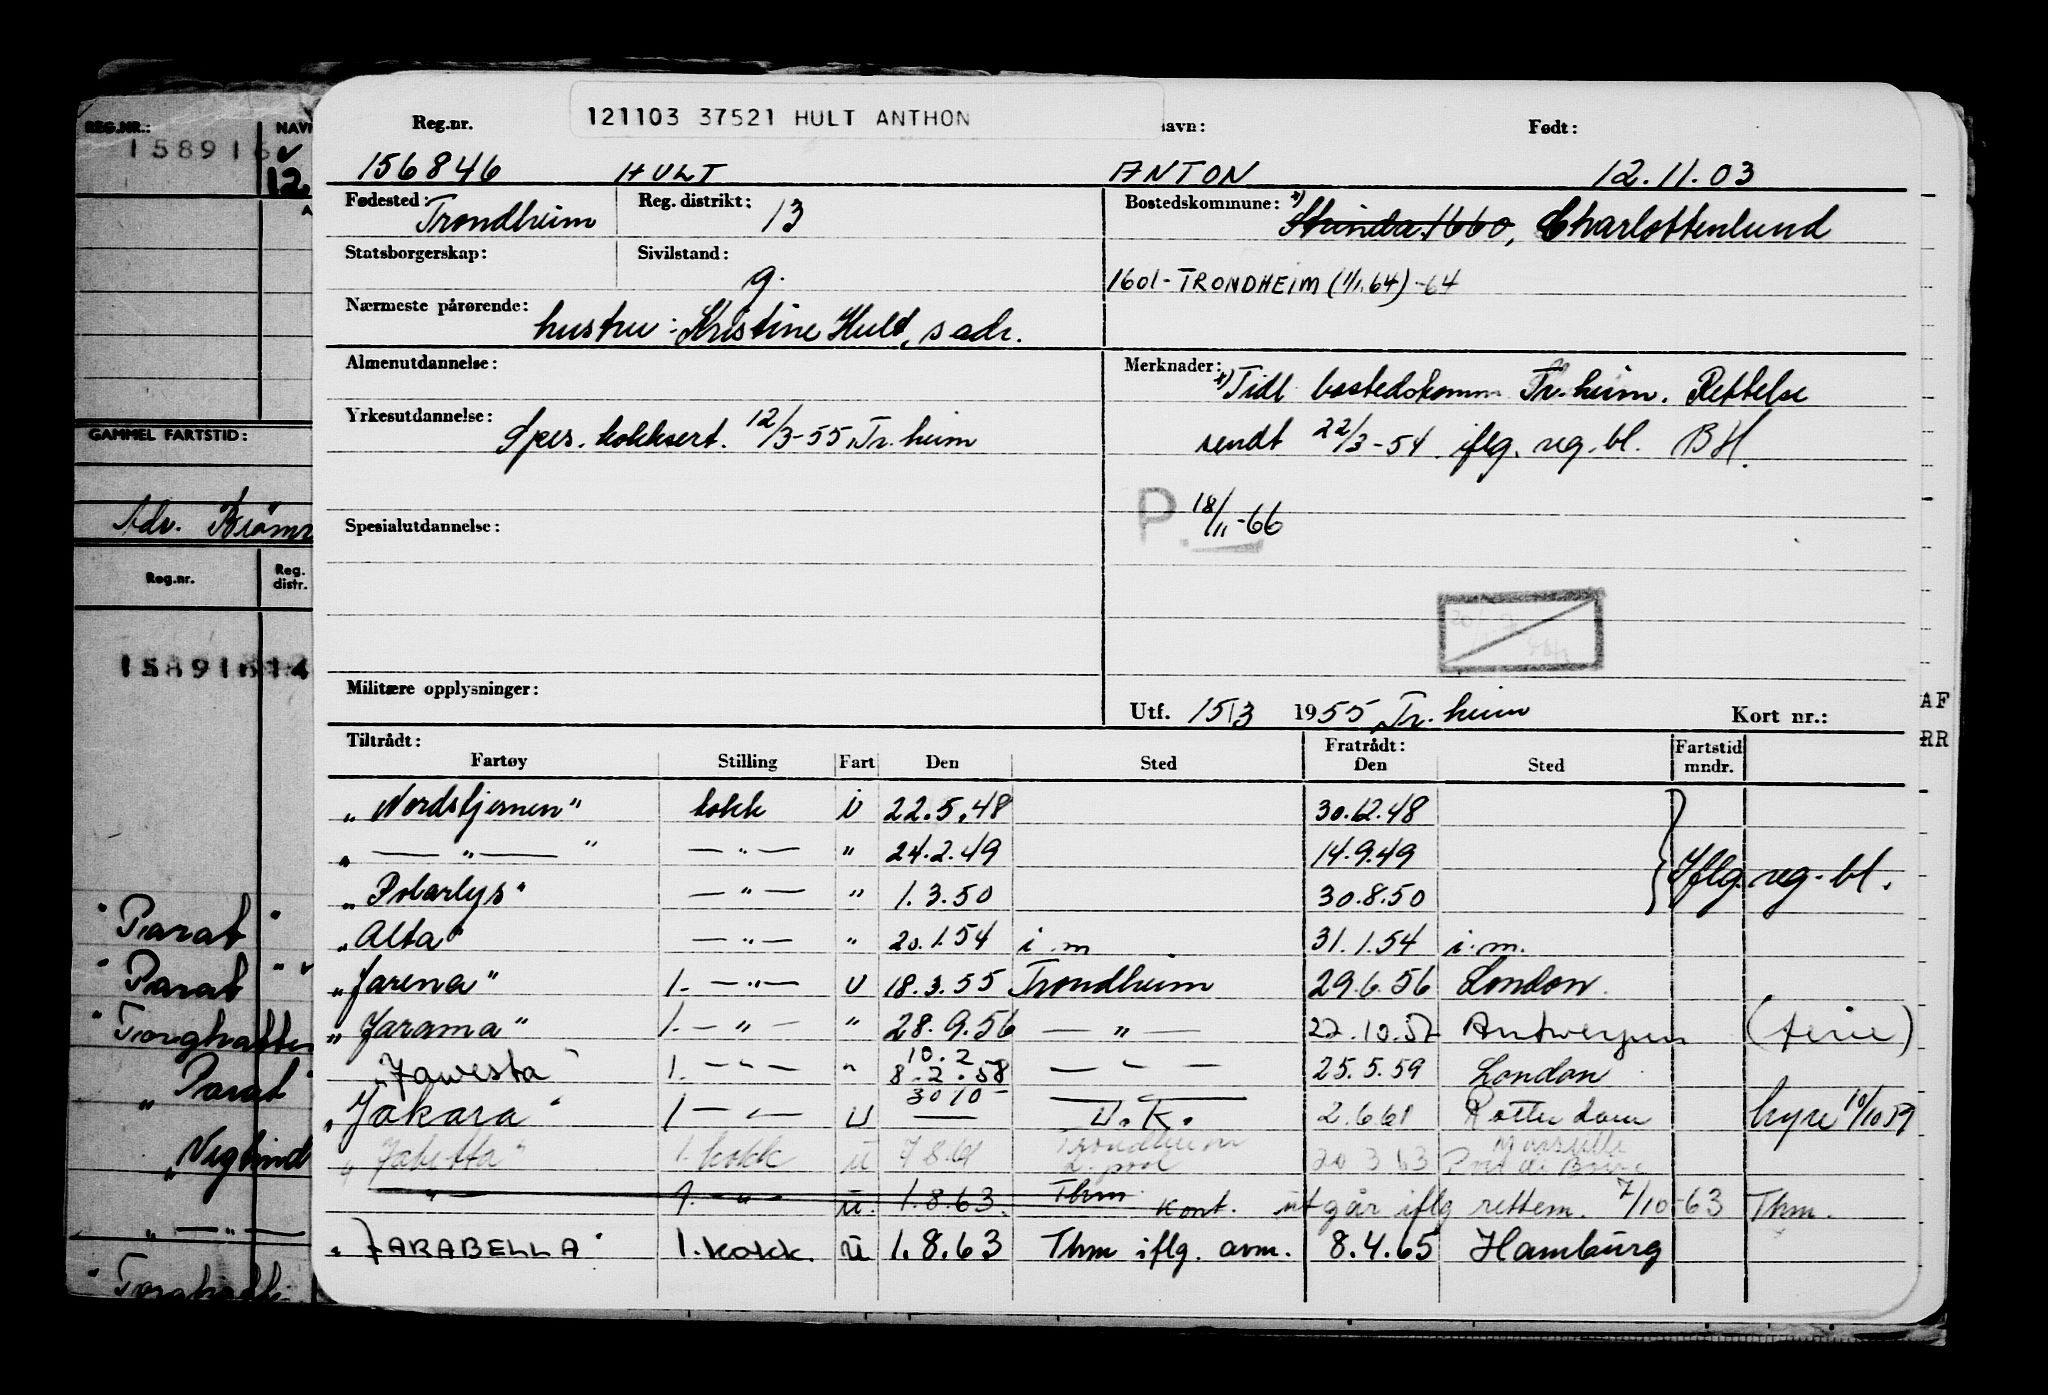 REG.NR.: NAVN
158916
12.
GAMMEL FARTSTID:
Adr.
Reg.nr. Reg. distr.
15891614
"Parat"
"Parat"
"Torghatten
"Parat"
"
" — " —
"
121103 37521 HULT ANTHON
Reg.nr. navn: Født:
156846 HULT ANTON 12.11.03
Fødested: Trondheim Reg. distrikt: 13 Bostedskommune: x) Strinda 1660, Charlottenlund
Statsborgerskap: Sivilstand: g. 1601-TRONDHEIM (1/1.64)-64
Nærmeste pårørende: hustru: Kristine Hult, s adr.
Almenutdannelse: Merknader: x) Tidl bostedskomm Tr.heim. Rettelse
Yrkesutdannelse: Spes. kokksert. 12/3-55, Tr.heim sendt 22/3-54 iflg. reg.bl. BH.
P. 18/11-66
Spesialutdannelse:
Militære opplysninger:
Utf. 15/3 1955 Tr.heim Kort nr.:
AF
RR
Tiltrådt: Fratrådt: Fartstid
Fartøy Stilling Fart Den Sted Den Sted mndr.
"Nordstjernen" kokk i 22.5.48 30.12.48
" — " — " — " — " 24.2.49 14.9.49
"Polarlys" — " — " 1.3.50 30.8.50 Iflg. reg.bl.
"Alta" — " — " 20.1.54 i.m 31.1.54 i.m.
"Jarena" 1. — " — U 18.3.55 Trondheim 29.6.56 London.
"Jarama" 1. — " — " 28.9.56 — " — 22.10.57 Antwerpen (ferie)
"Jawesta" 1. — " — " 10.2 8.2.58 — " — 25.5.59 London
"Jakara" 1 — " — U 30/10 — U.K. 2.6.61 Rotterdam hyre 10/10 59
"Jabetta" 1. kokk u 7.8.61 Trondheim L.pool 20.3.63 Marseille Port de Bouc
— " — 1. — " — u. 1.8.63. Thm Kont. utgår iflg rettem. 7/10-63 Thm.
"JARABELLA" 1. kokk. u 1.8.63 Thm iflg. avm. 8.4.65 Hamburg